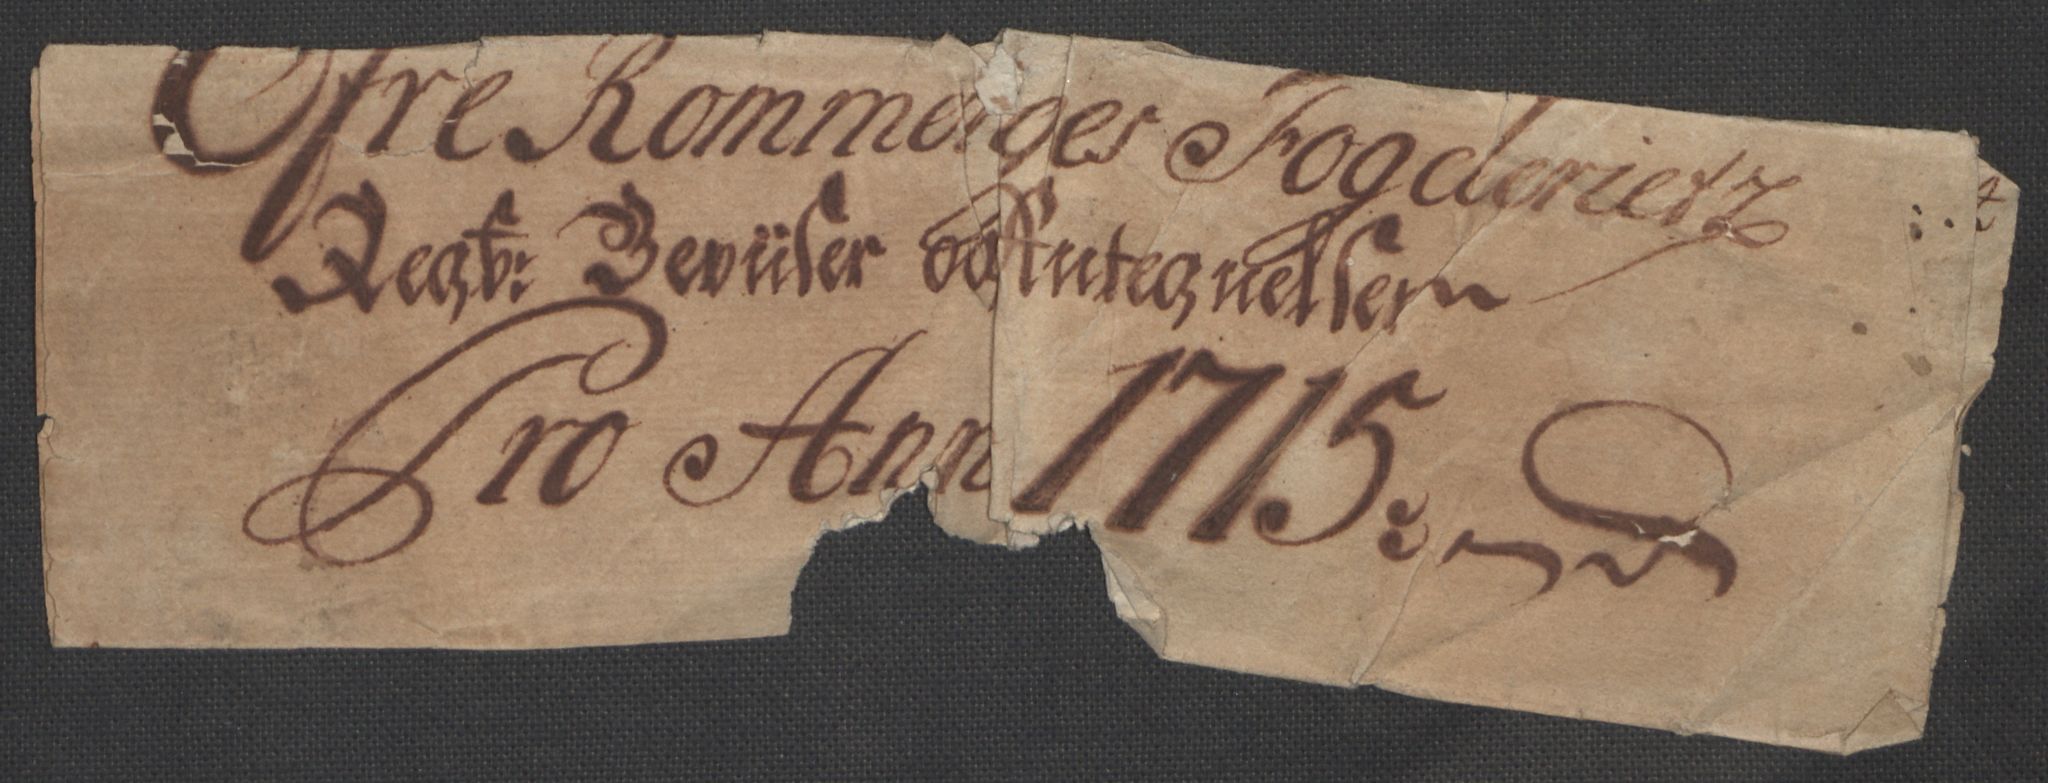 Øfre Rommeriges Fogderietz
Regb: Beviiser og Antegnelser
Pro Ann 1715: